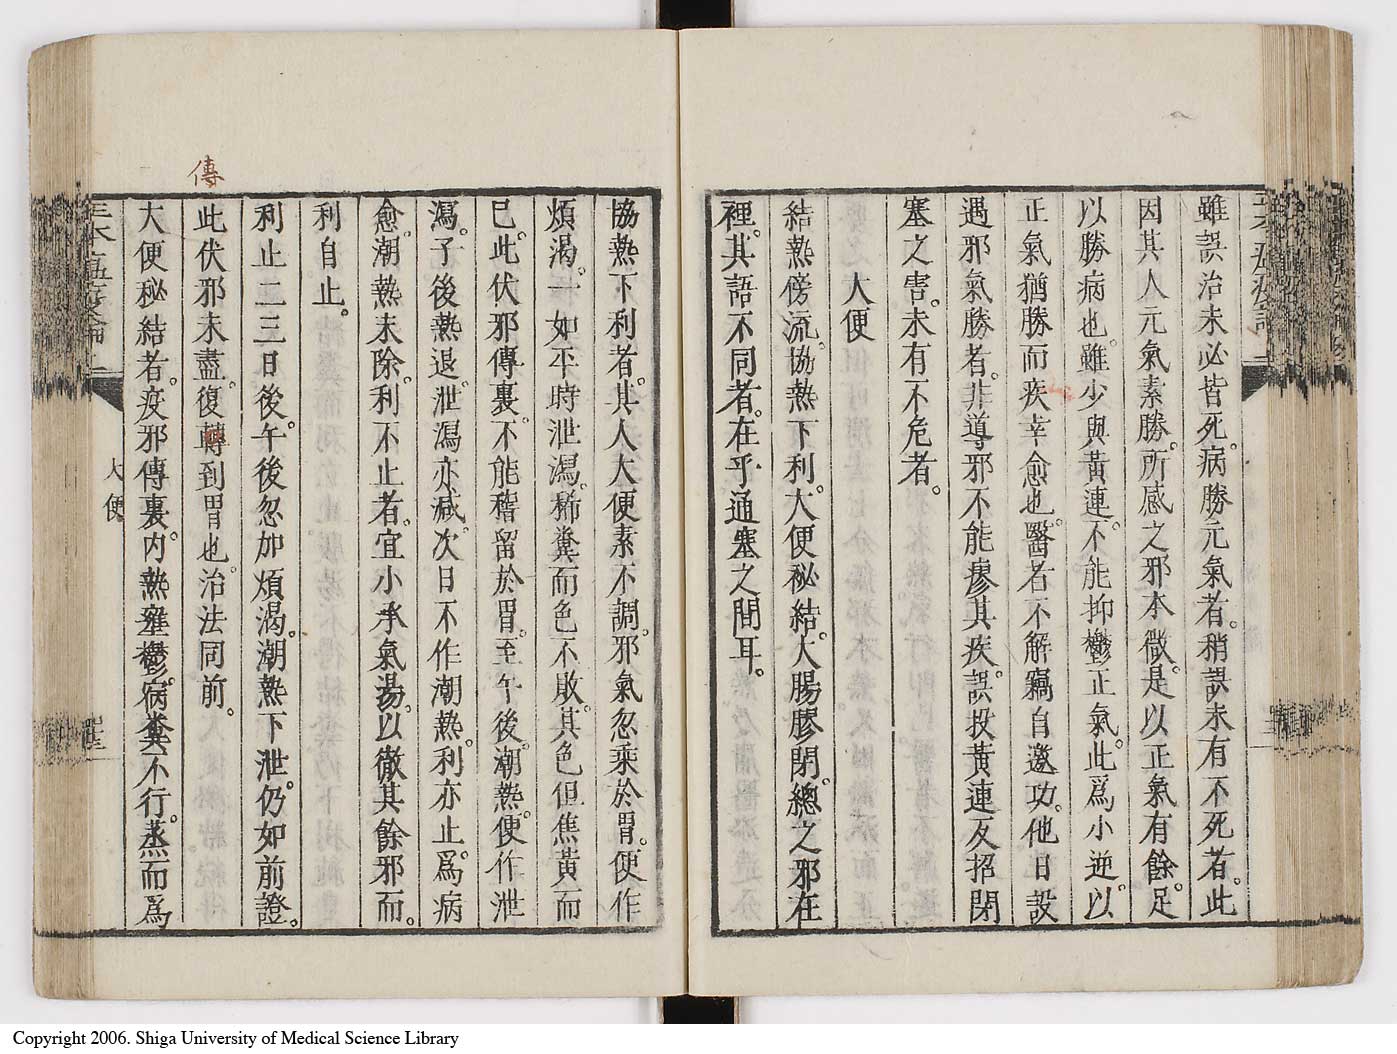 雖誤治未必皆死。病勝元氣者。稍誤未有不死者。此
因其人元氣素勝。所感之邪本微。是以正氣有餘。足
以勝病也。雖少與黃連。不能抑鬱正氣。此爲小逆。以
正氣猶勝而疾幸愈也。醫者不解竊自邀功。他日設
遇邪氣勝者。非導邪不能瘳其疾。誤投黃連反招閉
塞之害。未有不危者。
大便
結熱傍流。協熱下利。大便秘結。大腸膠閉。總之邪在
裡。其語不同者。在乎通塞之間耳。
協熱下利者。其人大便素不調。邪氣忽乘於胃。便作
煩渴。一如平時泄瀉。稀糞而色不敗。其色但焦黃而
已。此伏邪傳裏。不能稽留於胃。至午後潮熱。便作泄
瀉。子後熱退。泄瀉亦減。次日不作潮熱。利亦止。爲病
愈。潮熱未除。利不止者。宜小承氣湯。以徹其餘邪而。
利自止。
利止二三日後。午後忽加煩渴。潮熱下泄。仍如前證。
傳
此伏邪未盡。復轉到胃也。治法同前。
大便秘結者。疫邪傳裏。内熱壅鬱。病糞不行。蒸而爲
大便
Copyright 2006. Shiga University of Medical Science Library